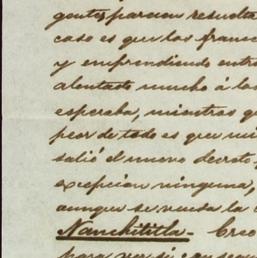 gentes parecian resuelta
caso es que los franc
y emprendiendo entr
alentado mucho á los
esperaba, mientras qu
peor de todo es que mi
salió el nuevo decreto,
excepcion ninguna,
aunque se venda la
Nanchititla. Creo
para ver si consegu